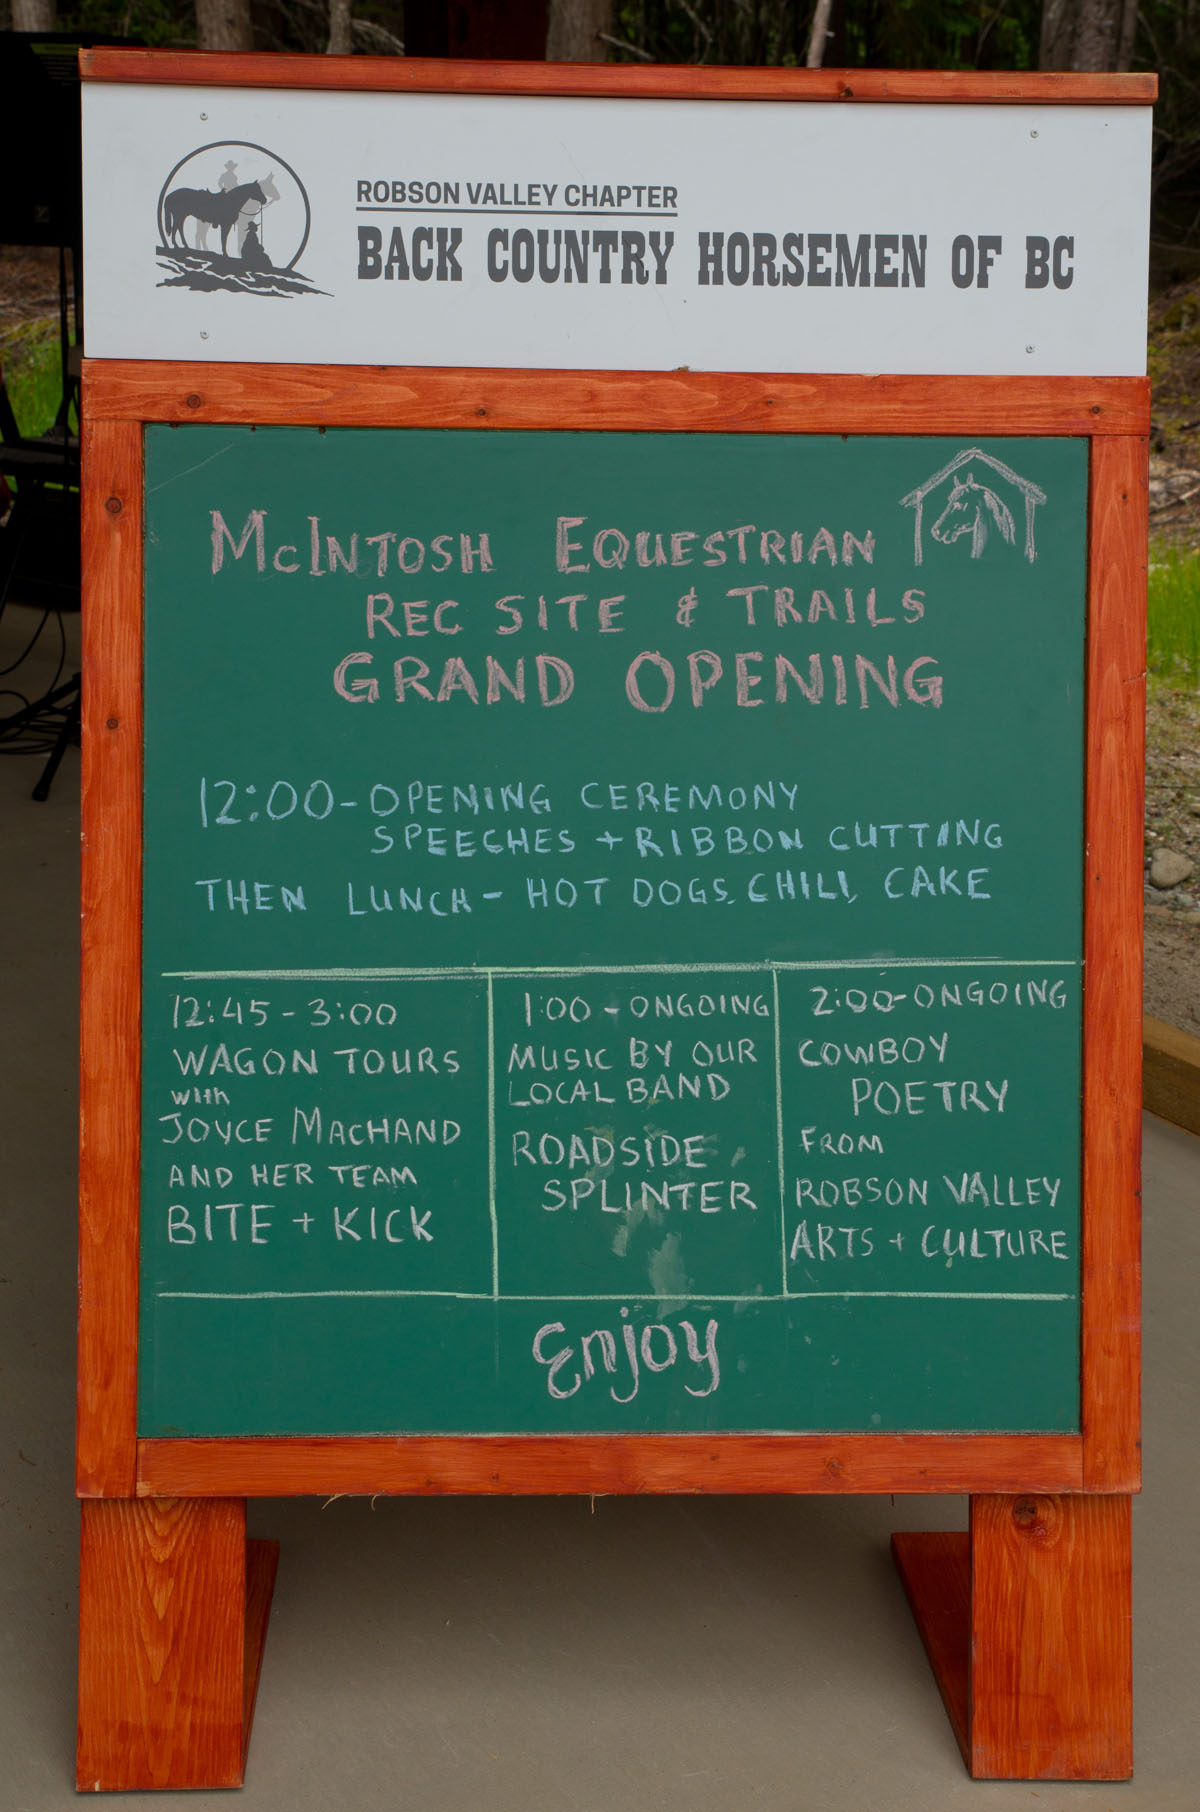 ROBSON VALLEY CHAPTER
BACK COUNTRY HORSEMEN OF BC
McINTOSH EQUESTRIAN
REC SITE & TRAILS
GRAND OPENING
12:00 - OPENING CEREMONY
SPEECHES + RIBBON CUTTING
THEN LUNCH - HOT DOGS, CHILI, CAKE
12:45 - 3:00
WAGON TOURS
with
JOYCE MACHAND
AND HER TEAM
BITE + KICK
1:00 - ONGOING
MUSIC BY OUR
LOCAL BAND
ROADSIDE
SPLINTER
2:00 - ONGOING
COWBOY
POETRY
FROM
ROBSON VALLEY
ARTS + CULTURE
Enjoy